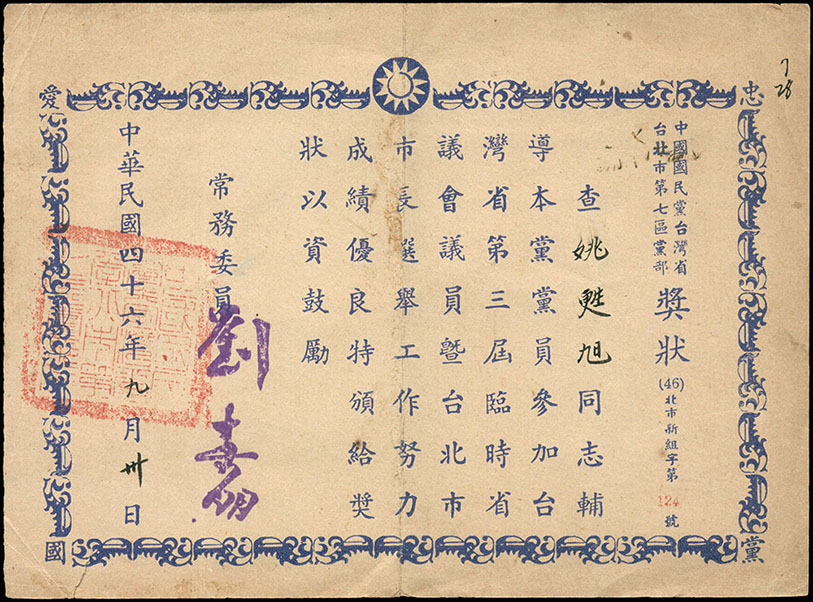 忠
黨
愛
國
中國國民黨台灣省
台北市第七區黨部
獎狀
(46)北市新組字第124號
查姚甦旭同志輔
導本黨黨員參加台
灣省第三屆臨時省
議會議員暨台北市
市長選舉工作努力
成績優良特頒給獎
狀以資鼓勵
常務委員
中華民國四十六年九月卅日